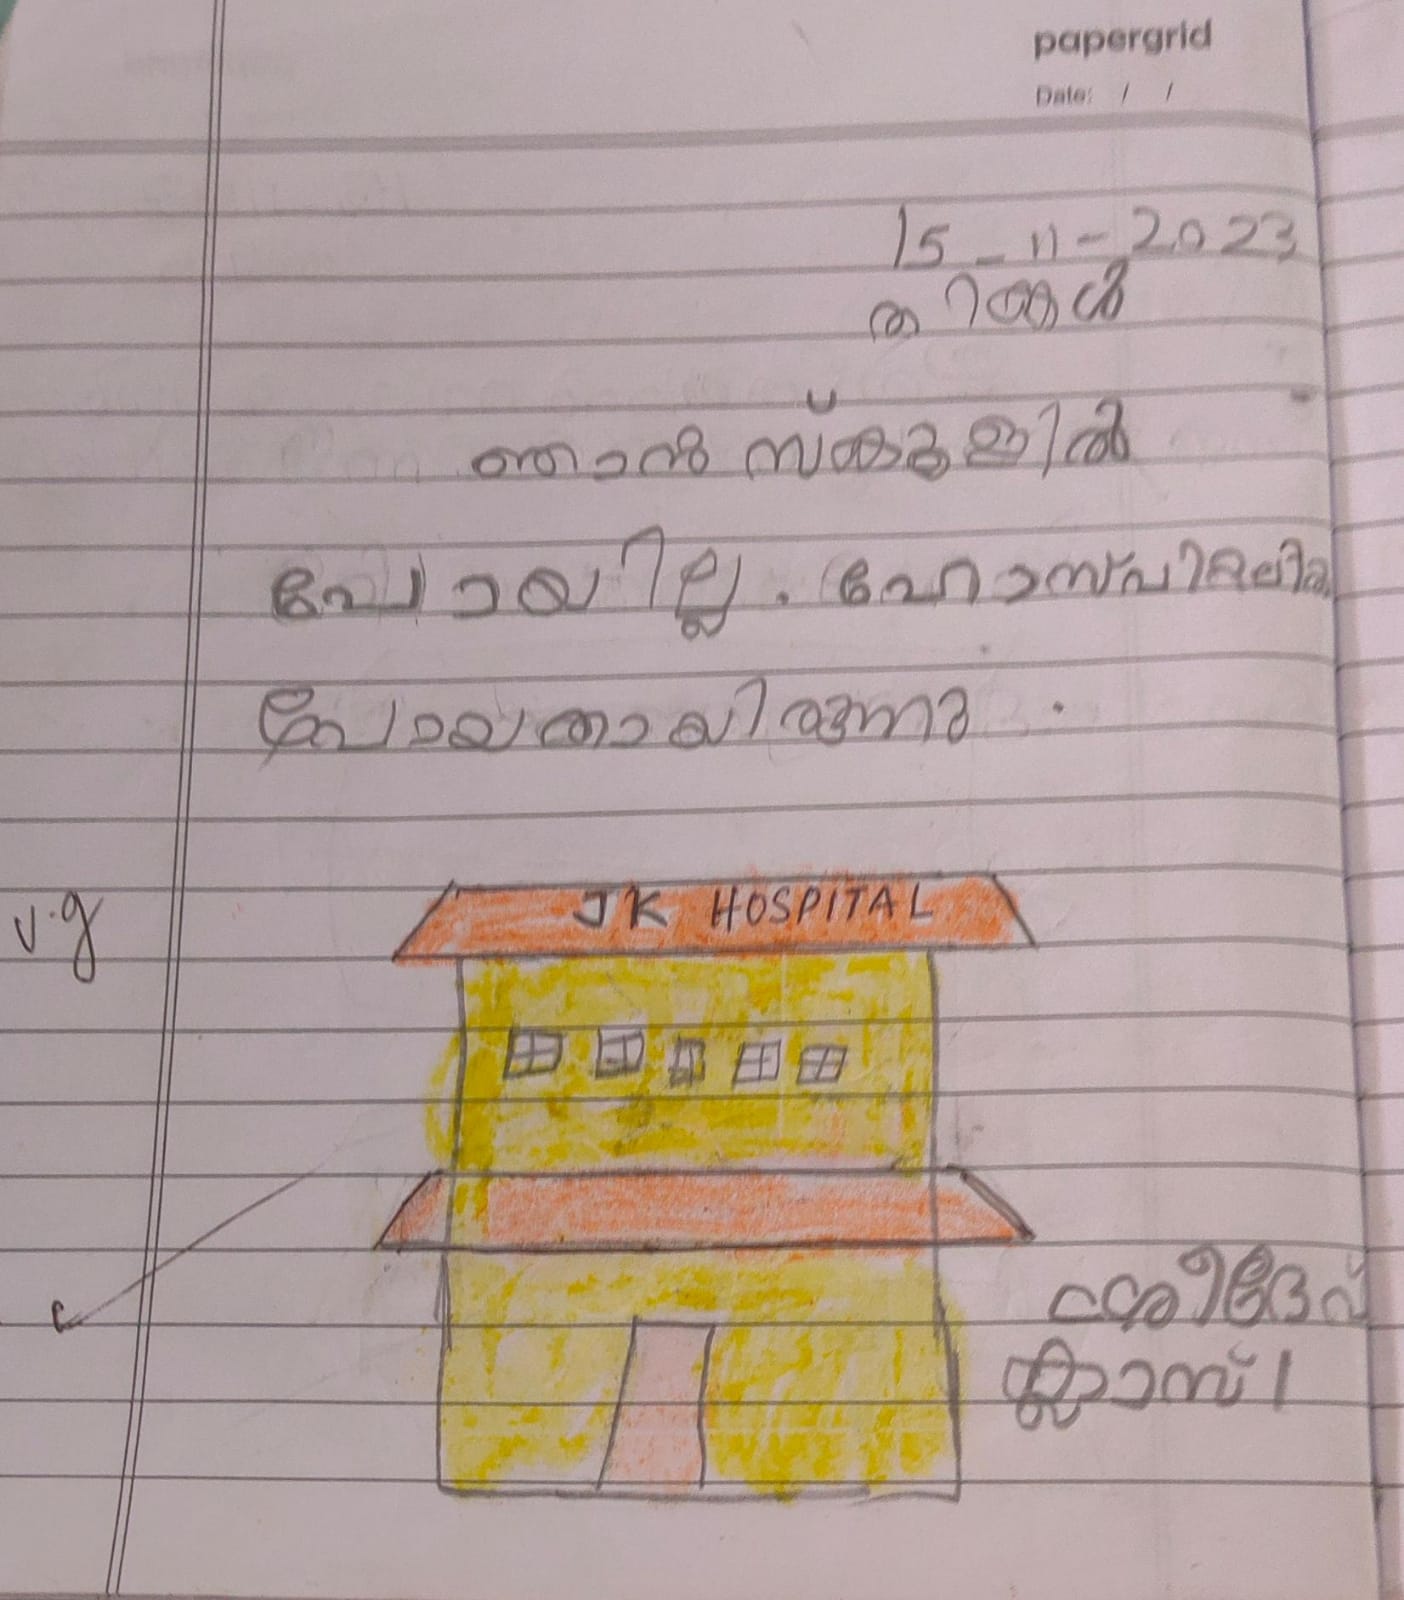 papergrid
Date: / /
15-11-2023
തിങ്കൾ
ഞാൻ സ്കൂളിൽ
പോയില്ല. ഹോസ്പിറ്റലിൽ
പോയതായിരുന്നു.
v.g
JK HOSPITAL
ക്ലാസ് 1